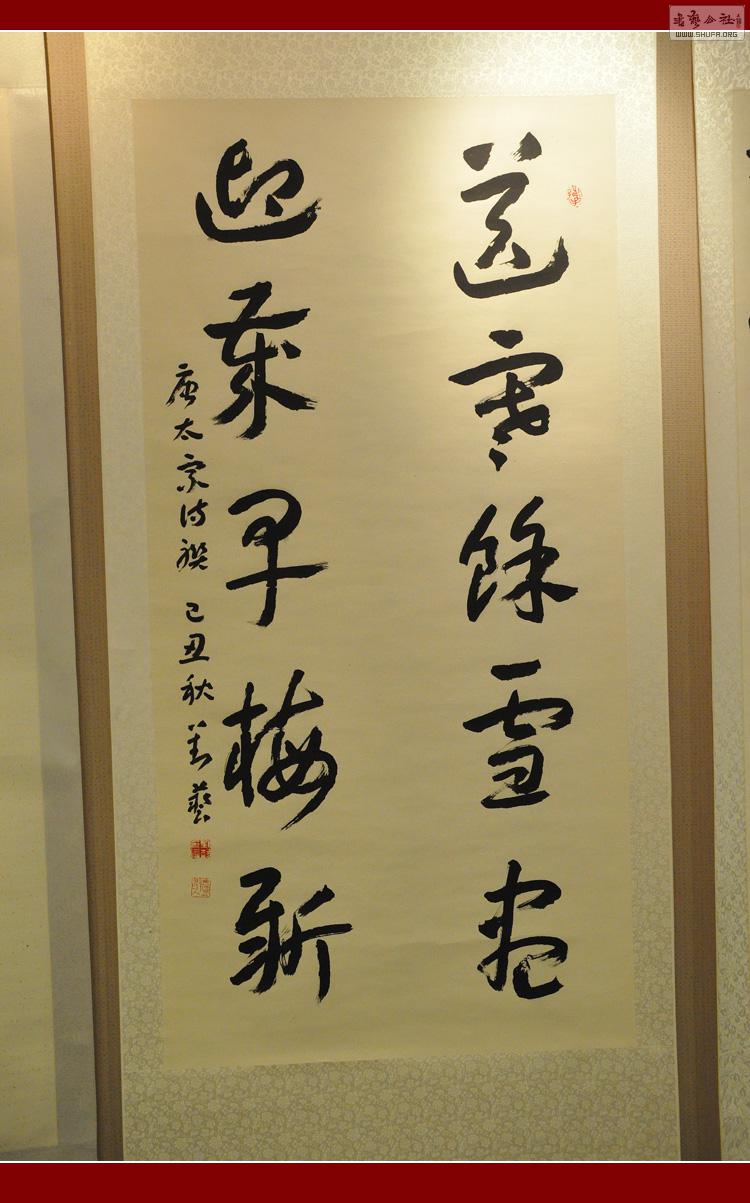 送寒餘雪盡
迎歲早梅新
唐太宗詩聯 己丑秋 善藝
WWW.SHUFA.ORG